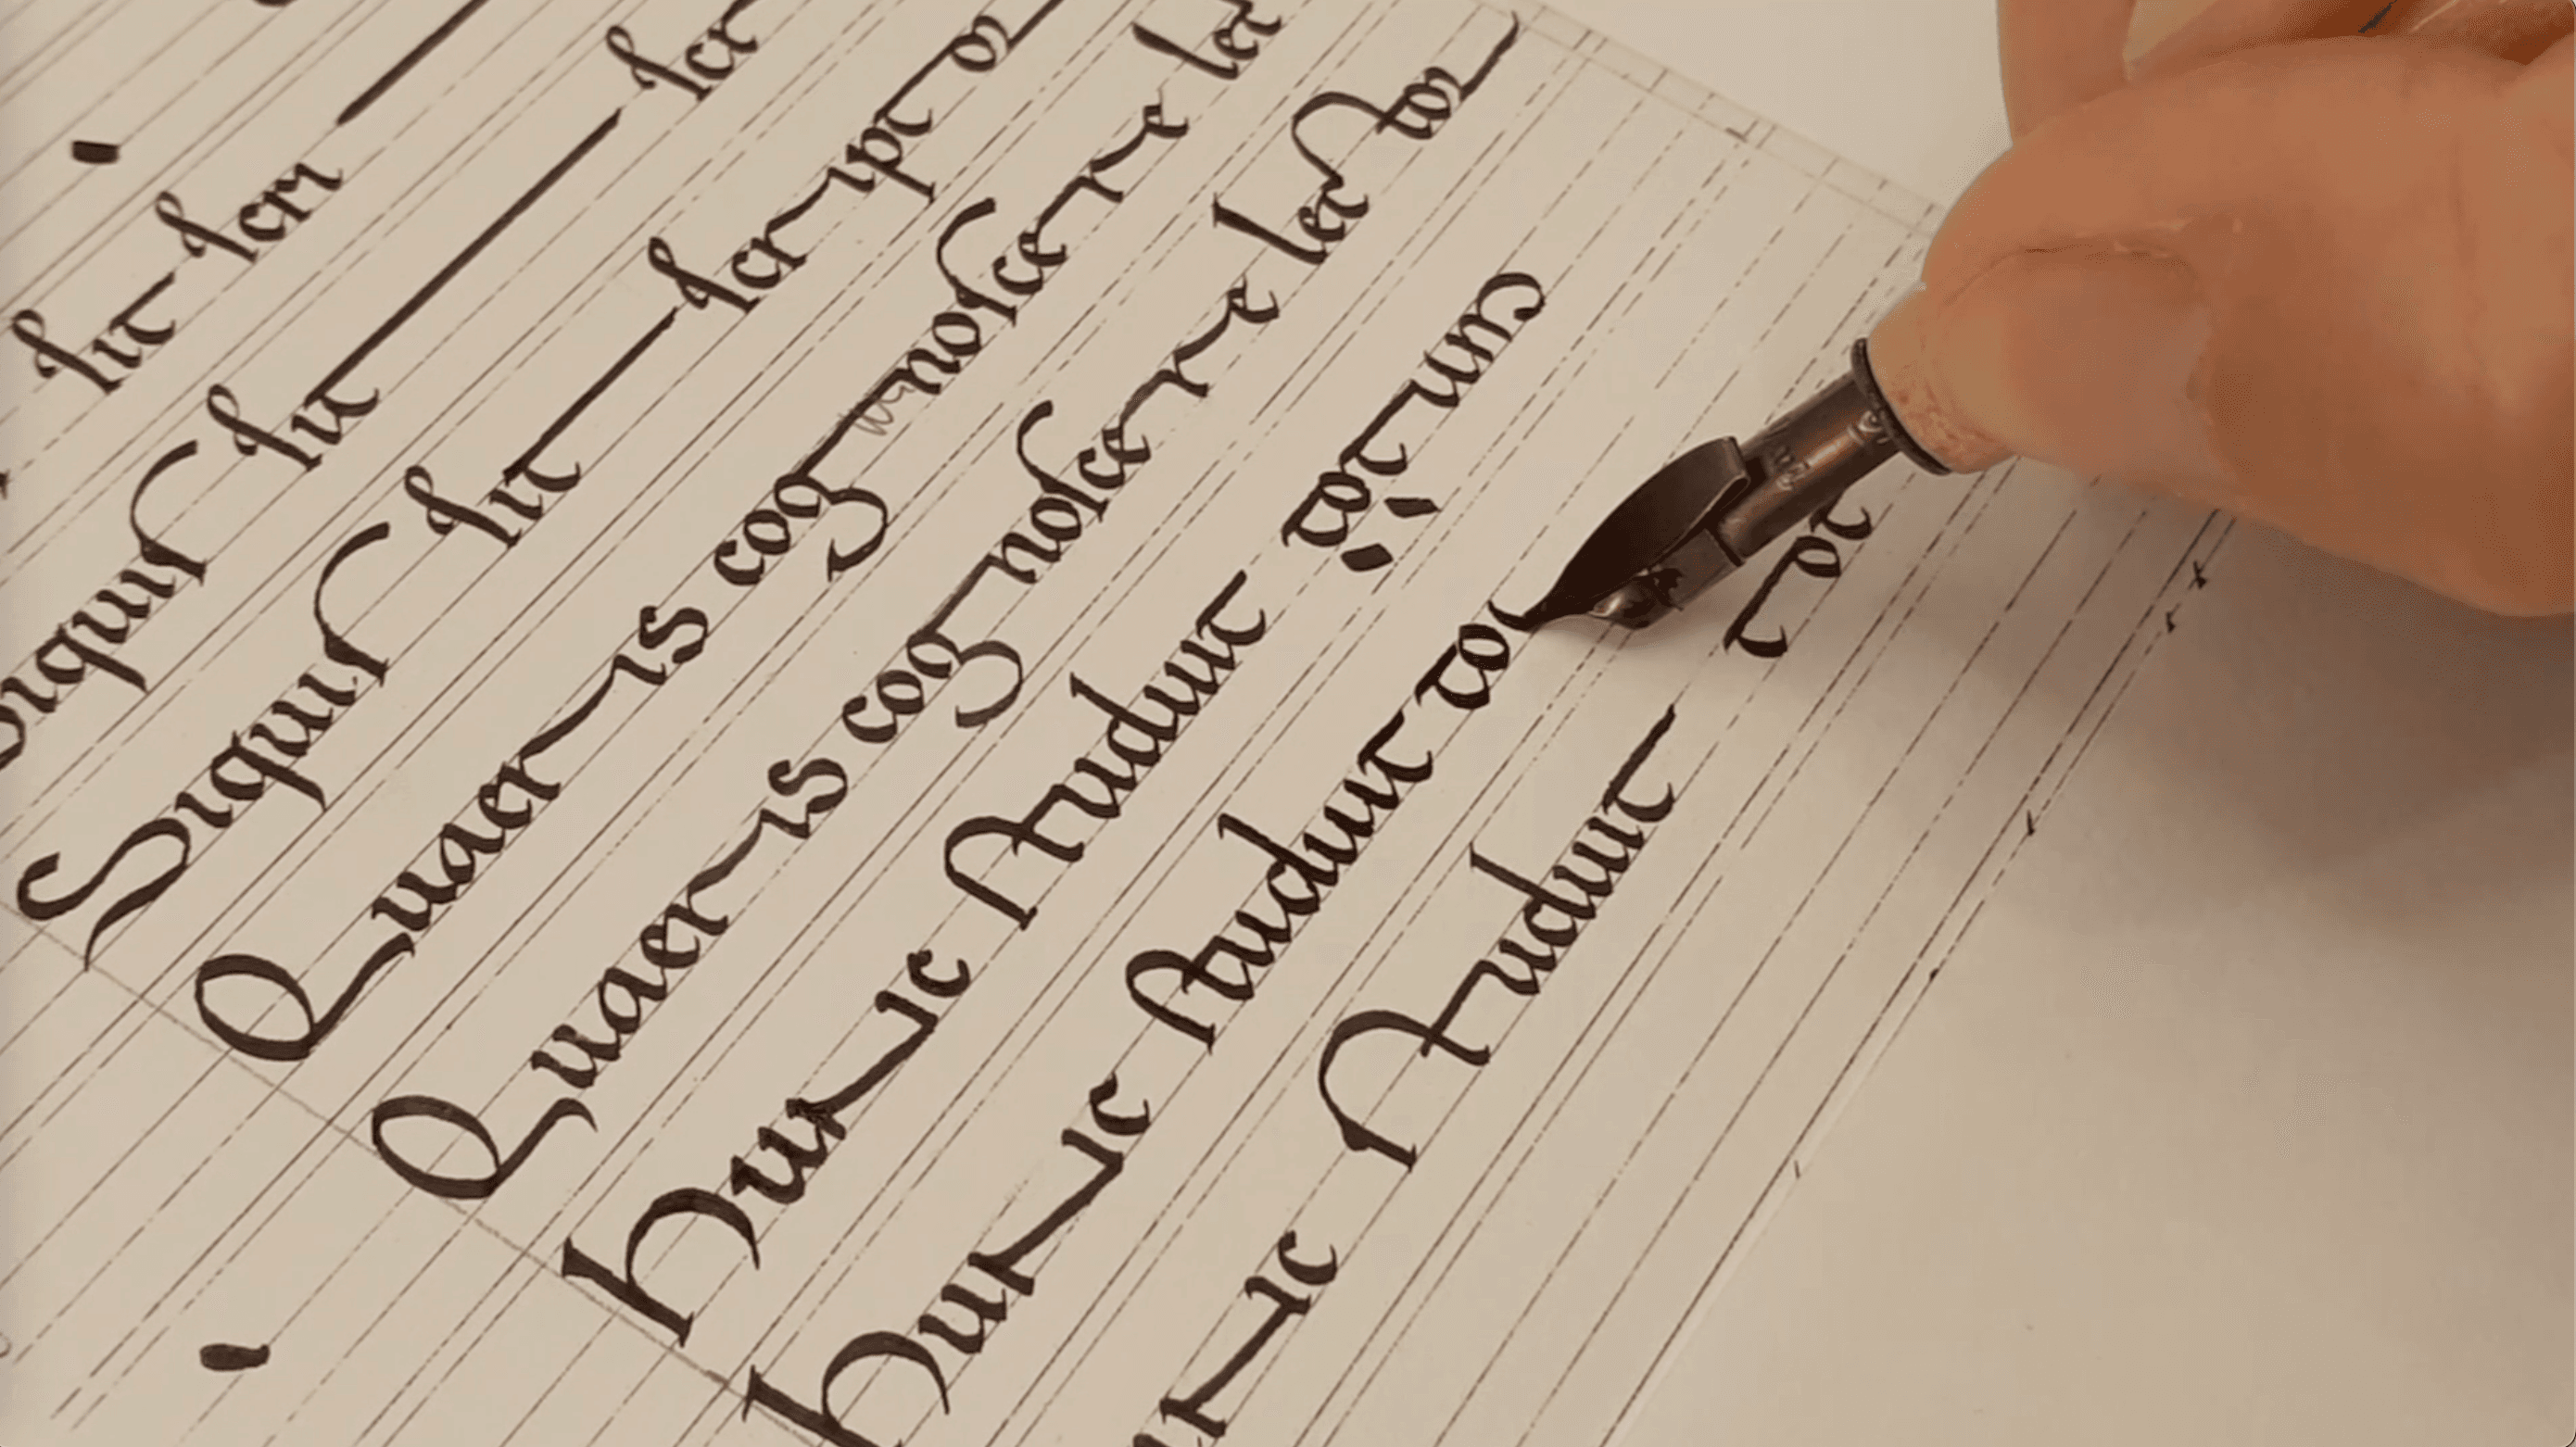 sit scri
Siquis sit scr
Siquis sit scriptor
Quaeris cognoscere lec
Quaeris cognoscere lector
Hunc studuit totum
Hunc studuit to
nc studuit